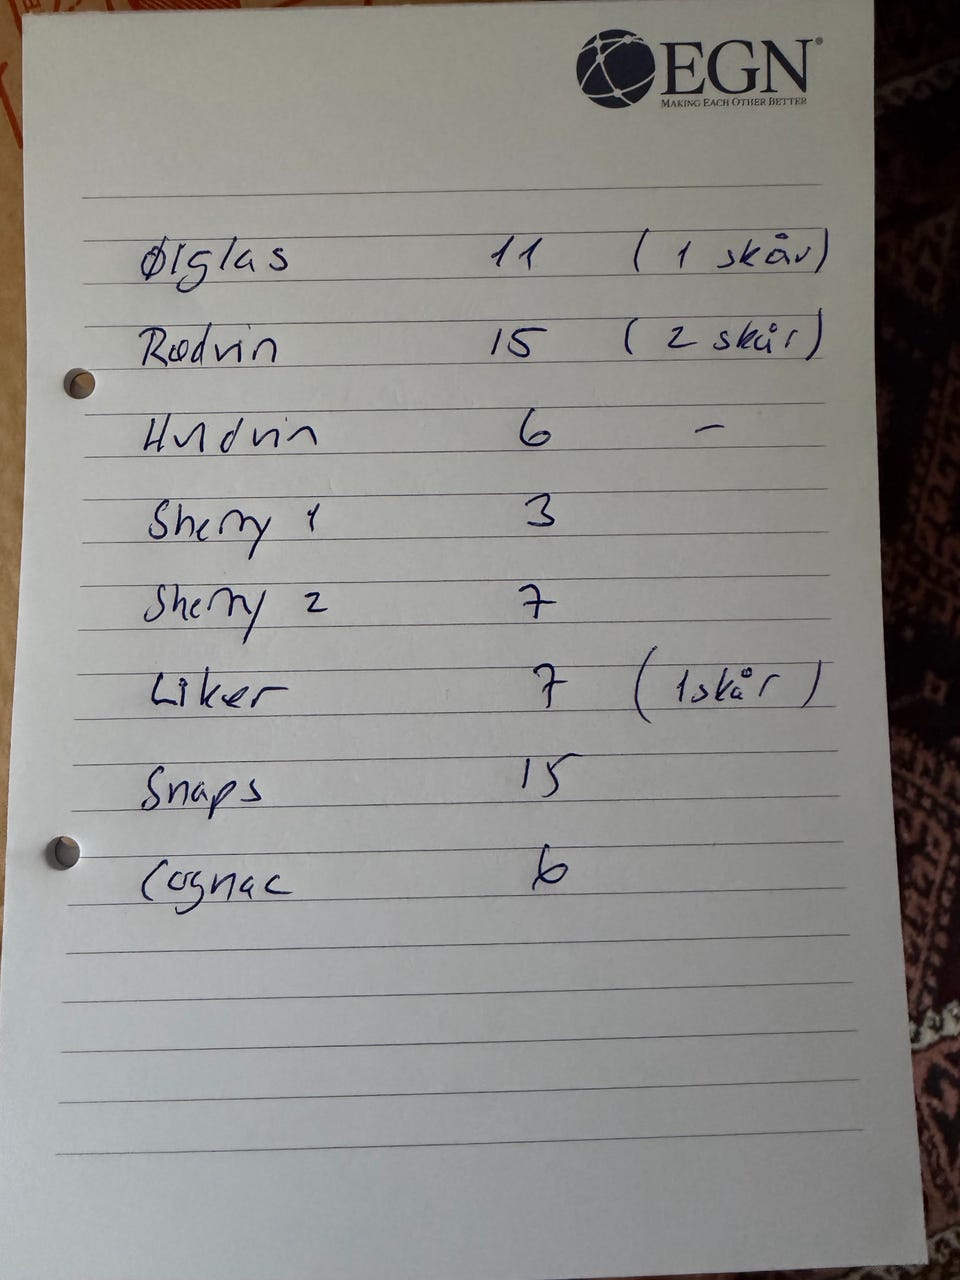 EGN®
MAKING EACH OTHER BETTER
Ølglas 11 (1 skår)
Rødvin 15 (2 skår)
Hvidvin 6 -
Sherry 1 3
Sherry 2 7
Likør 7 (1 skår)
Snaps 15
Cognac 6